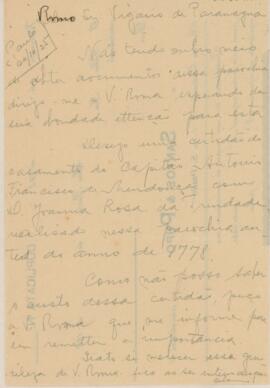 Rvmo Snr Vigario de Paranagua
Não tendo outro meio
de obter documentos nessa parochia
dirijo-me a V. Rvma esperando da
sua bondade attenção para esta
Desejo uma certidão do
casamento do Capitão Antonio
Francisco de Mendonça com
D. Joanna Rosa da Trindade
realisado nessa parochia an
tes do anno de 1778.
Como não posso saber
o custo dessa certidão, peço
a V. Rvma que me informe pa
ra remetter a importancia
Grato em merecer essa gen
tileza de V. Rvma. fico ao ser